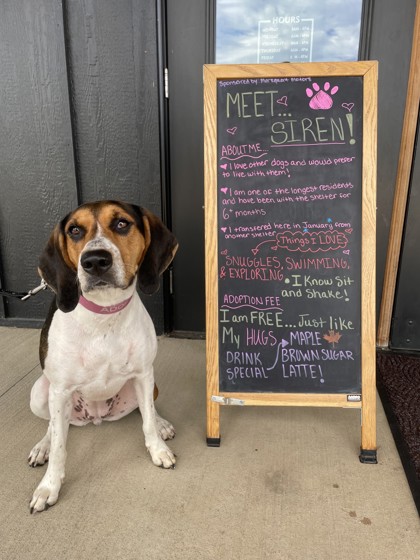 HOURS
Sponsored by
MEET...
SIREN!
ABOUT ME
I love other dogs and would prefer
to live with them!
I am one of the longest residents
and have been with the shelter for
6+ months
I transfered here in January from
another shelter
Things I LOVE
SNUGGLES, SWIMMING,
& EXPLORING
• I Know Sit
and Shake!
ADOPTION FEE
I am FREE... Just like
My HUGS
DRINK
SPECIAL
MAPLE
BROWN SUGAR
LATTE!